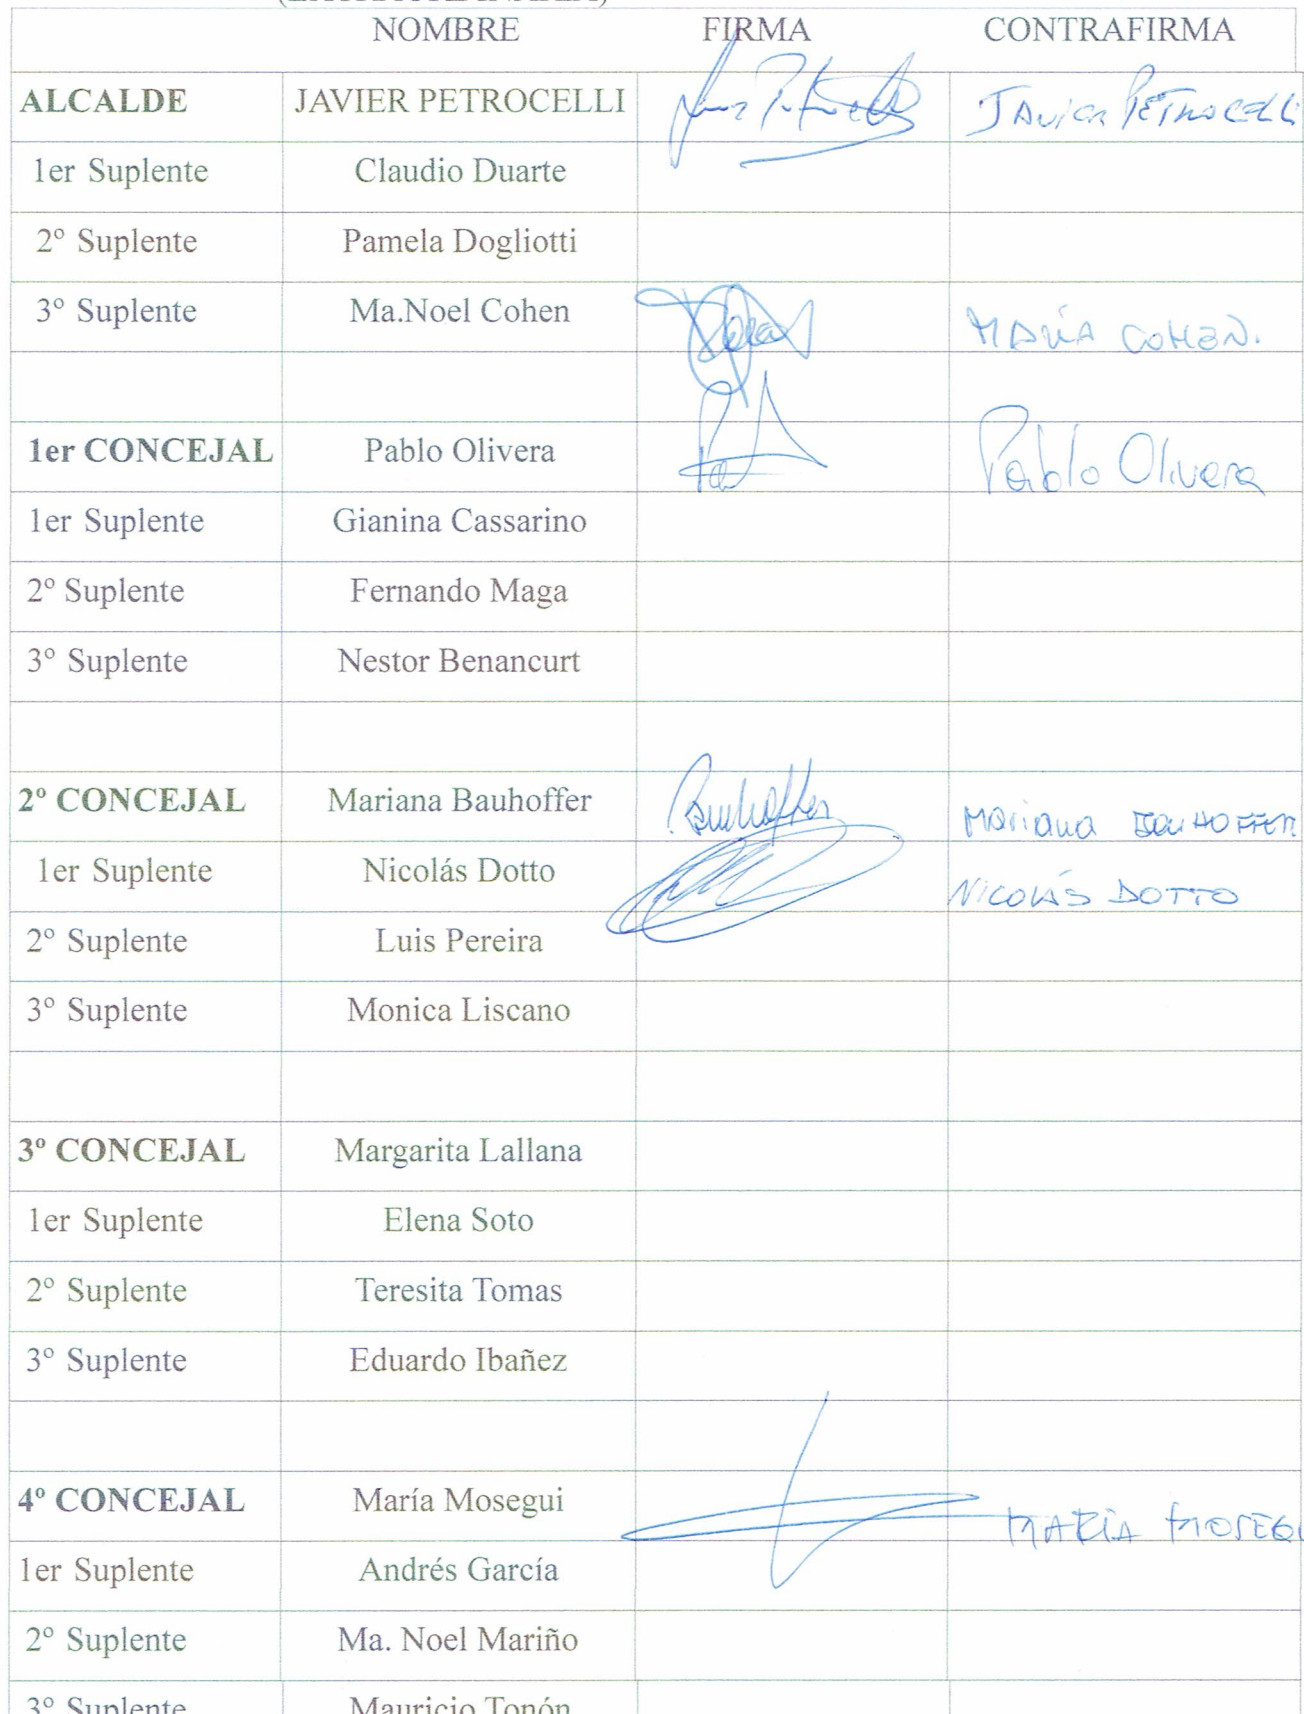 NOMBRE FIRMA CONTRAFIRMA
ALCALDE JAVIER PETROCELLI Javier Petrocelli
1er Suplente Claudio Duarte
2º Suplente Pamela Dogliotti
3º Suplente Ma.Noel Cohen MARÍA COHEN.
1er CONCEJAL Pablo Olivera Pablo Olivera
1er Suplente Gianina Cassarino
2º Suplente Fernando Maga
3º Suplente Nestor Benancurt
2º CONCEJAL Mariana Bauhoffer Bauhoffer Mariana BAUHOFFER
1er Suplente Nicolás Dotto NICOLÁS DOTTO
2º Suplente Luis Pereira
3º Suplente Monica Liscano
3º CONCEJAL Margarita Lallana
1er Suplente Elena Soto
2º Suplente Teresita Tomas
3º Suplente Eduardo Ibañez
4º CONCEJAL María Mosegui MARÍA MOSEGU
1er Suplente Andrés García
2º Suplente Ma. Noel Mariño
3º Suplente Mauricio Tonón